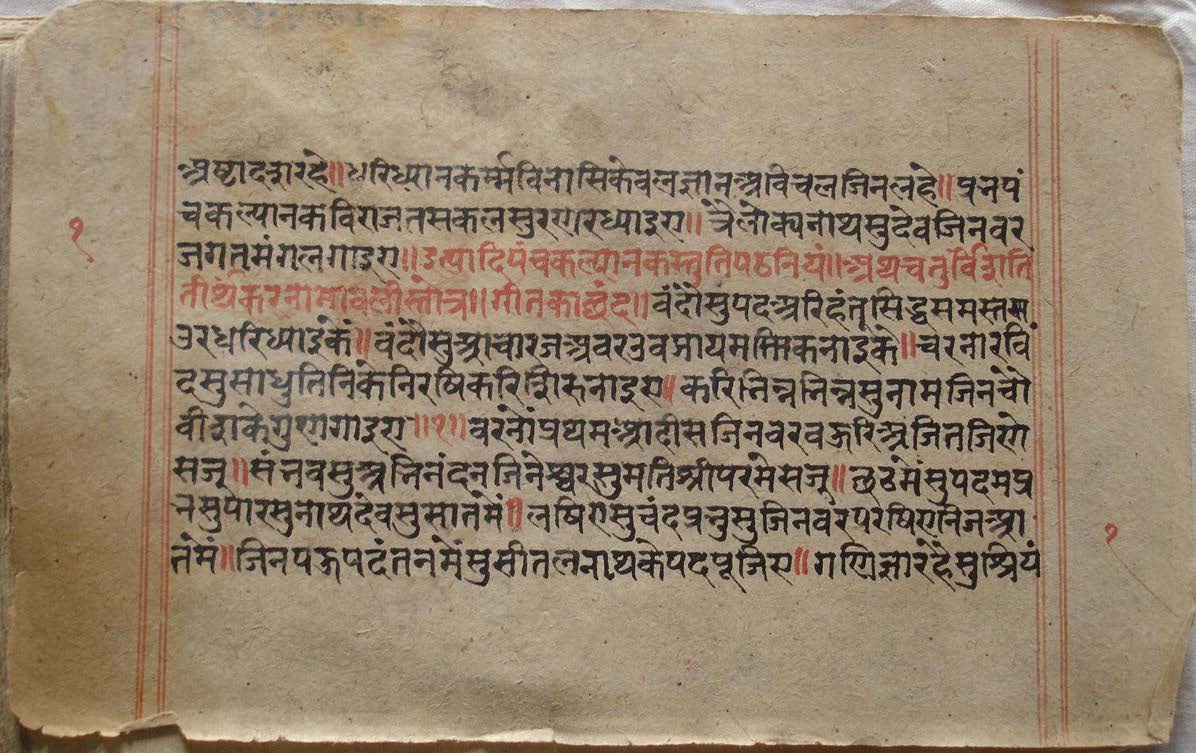 अष्टादशारहे॥धरिध्यानकर्म्मविनासिकेवलज्ञानअविचलजिनलहे॥प्रभपं
चकल्यानकविराजतसकलसुरणरध्याइए॥त्रैलोक्यनाथसुदेवजिनवर
१
जगतमंगलगाइए॥इत्यादिपंचकल्यानकस्तुतिपठनियं॥अथचतुर्विंशति
तीर्थंकरनामावलीस्तोत्र॥गीतकाछंद॥वंदौंसुपदअरिहंतसिद्धसमस्त
उरधरिध्याइंकें॥वंदौंसुआचारजअवरउवझायमस्तिकनाइके॥चरनारविं
दसुसाधुतिनिकेनिरषिकरिशिरनाइए॥करिभिन्नभिन्नसुनामजिनचौ
वीशकेगुणगाइए॥१॥वरनौंप्रथमआदीसजिनवरवऊरिअजितजिणे
सजू॥संभवसुअभिनंदनजिनेश्वरसुमतिश्रीपरमेसजू॥छठमंसुपदमप्र
भसुपारसुनाथदेवसुसातमें॥लषिएसुचंदप्रभुसुजिनवरपरषिएनिजआ
१
तमं॥जिनपऊपदंतनमंसुसीतलनाथकेपदपूजिए॥गणिज्ञारहेसुश्रियं